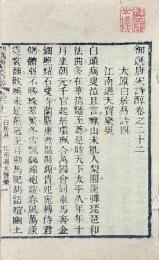 御選唐宋詩醇卷之二十二
太原白居易詩四
江南遇天寶樂叟
白頭病叟泣且言祿山未亂入梨園能彈琵琶和
法曲多在華清隨至尊是時天下太平久年年十
月坐朝元千官起居環珮合萬國會同車馬奔金
鈿照耀石甕寺蘭麝薰煮溫湯源貴妃宛轉侍君
側體弱不勝珠翠繁冬雪飄颻錦袍暖春風蕩漾
霓裳翻歡娛未足燕寇至弓勁馬肥胡語喧幽土